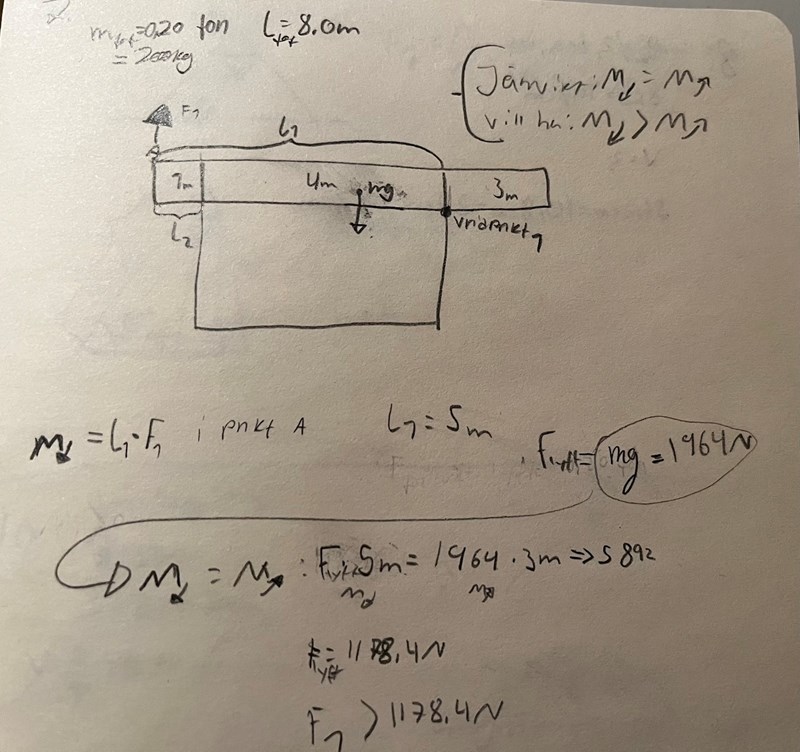 2.
m_tot=0,20 ton L_tot=8.0m
= 200kg
Jämvikt: M↙ = M↗
vill ha: M↙ > M↗
F₁
L₁
A
1m 4m mg 3m
L₂
vridpnkt₁
M↙ = L₁·F₁ i pnkt A L₁ = 5m
F_lyft = mg = 1964N
M↙ = M↗ : F_lyft 5m = 1964 · 3m => 5892
M↙ M↗
F_lyft = 1178,4N
F₁ > 1178.4N